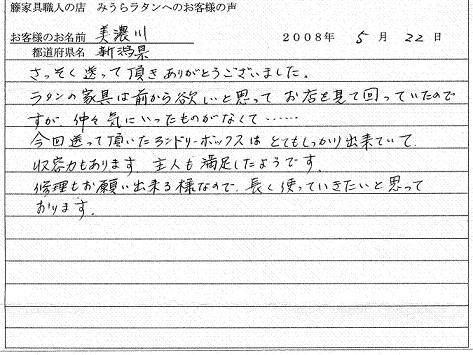 籐家具職人の店　みうらラタンへのお客様の声
お客様のお名前　美濃川　2008年　5　月　22　日
都道府県名　新潟県
さっそく送って頂きありがとうございました。
ラタンの家具は前から欲しいと思って お店を見て回っていたので
すが、仲々気にいったものがなくて……
今回送って頂いたランドリーボックスは とてもしっかり出来ていて、
収容力もあります。主人も満足したようです。
修理もお願い出来る様なので、長く使っていきたいと思って
おります。